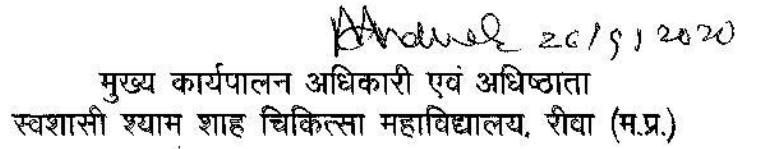 26/9/2020
मुख्य कार्यपालन अधिकारी एवं अधिष्ठाता
स्वशासी श्याम शाह चिकित्सा महाविद्यालय, रीवा (म.प्र.)